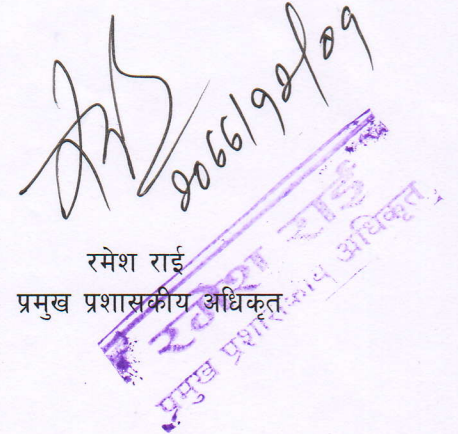 २०६६/१२/०१
रमेश राई
प्रमुख प्रशासकीय अधिकृत
रमेश राई
प्रमुख प्रशासकीय अधिकृत